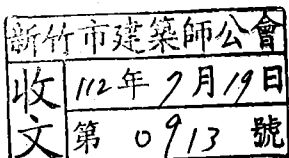 新竹市建築師公會
收文
112年7月19日
第0913號